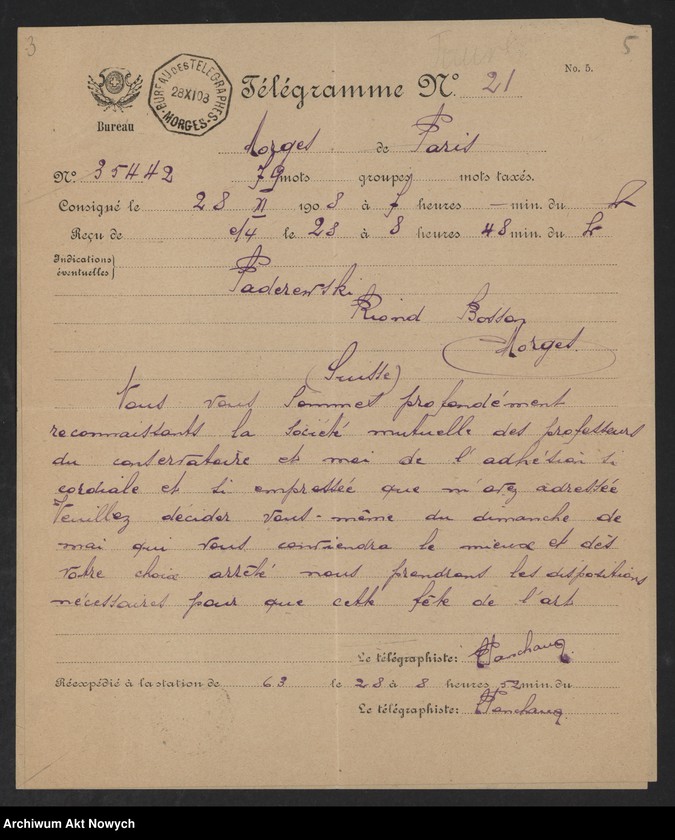 3
5
No. 5.
BUREAU DES TELEGRAPHES
28 XI 08
MORGES
Bureau
Télégramme No. 21
Morges de Paris
No. 35442 79 mots groupes mots taxés.
Consigné le 28 XI 1908 à 7 heures — min. du
Reçu de le 28 à 8 heures 48 min. du
Indications éventuelles
Paderewski
Riond Bosson
Morges.
(Suisse)
Nous vous sommes profondément
reconnaissants la société mutuelle des professeurs
du conservatoire et moi de l'adhésion si
cordiale et si empressée que m'avez adressée
Veuillez décider vous-même du dimanche de
mai qui vous conviendra le mieux et dès
votre choix arrêté nous prendrons les dispositions
nécessaires pour que cette fête de l'art
Le télégraphiste:
Réexpédié à la station de 63 le 28 à 8 heures 52 min. du
Le télégraphiste:
Archiwum Akt Nowych